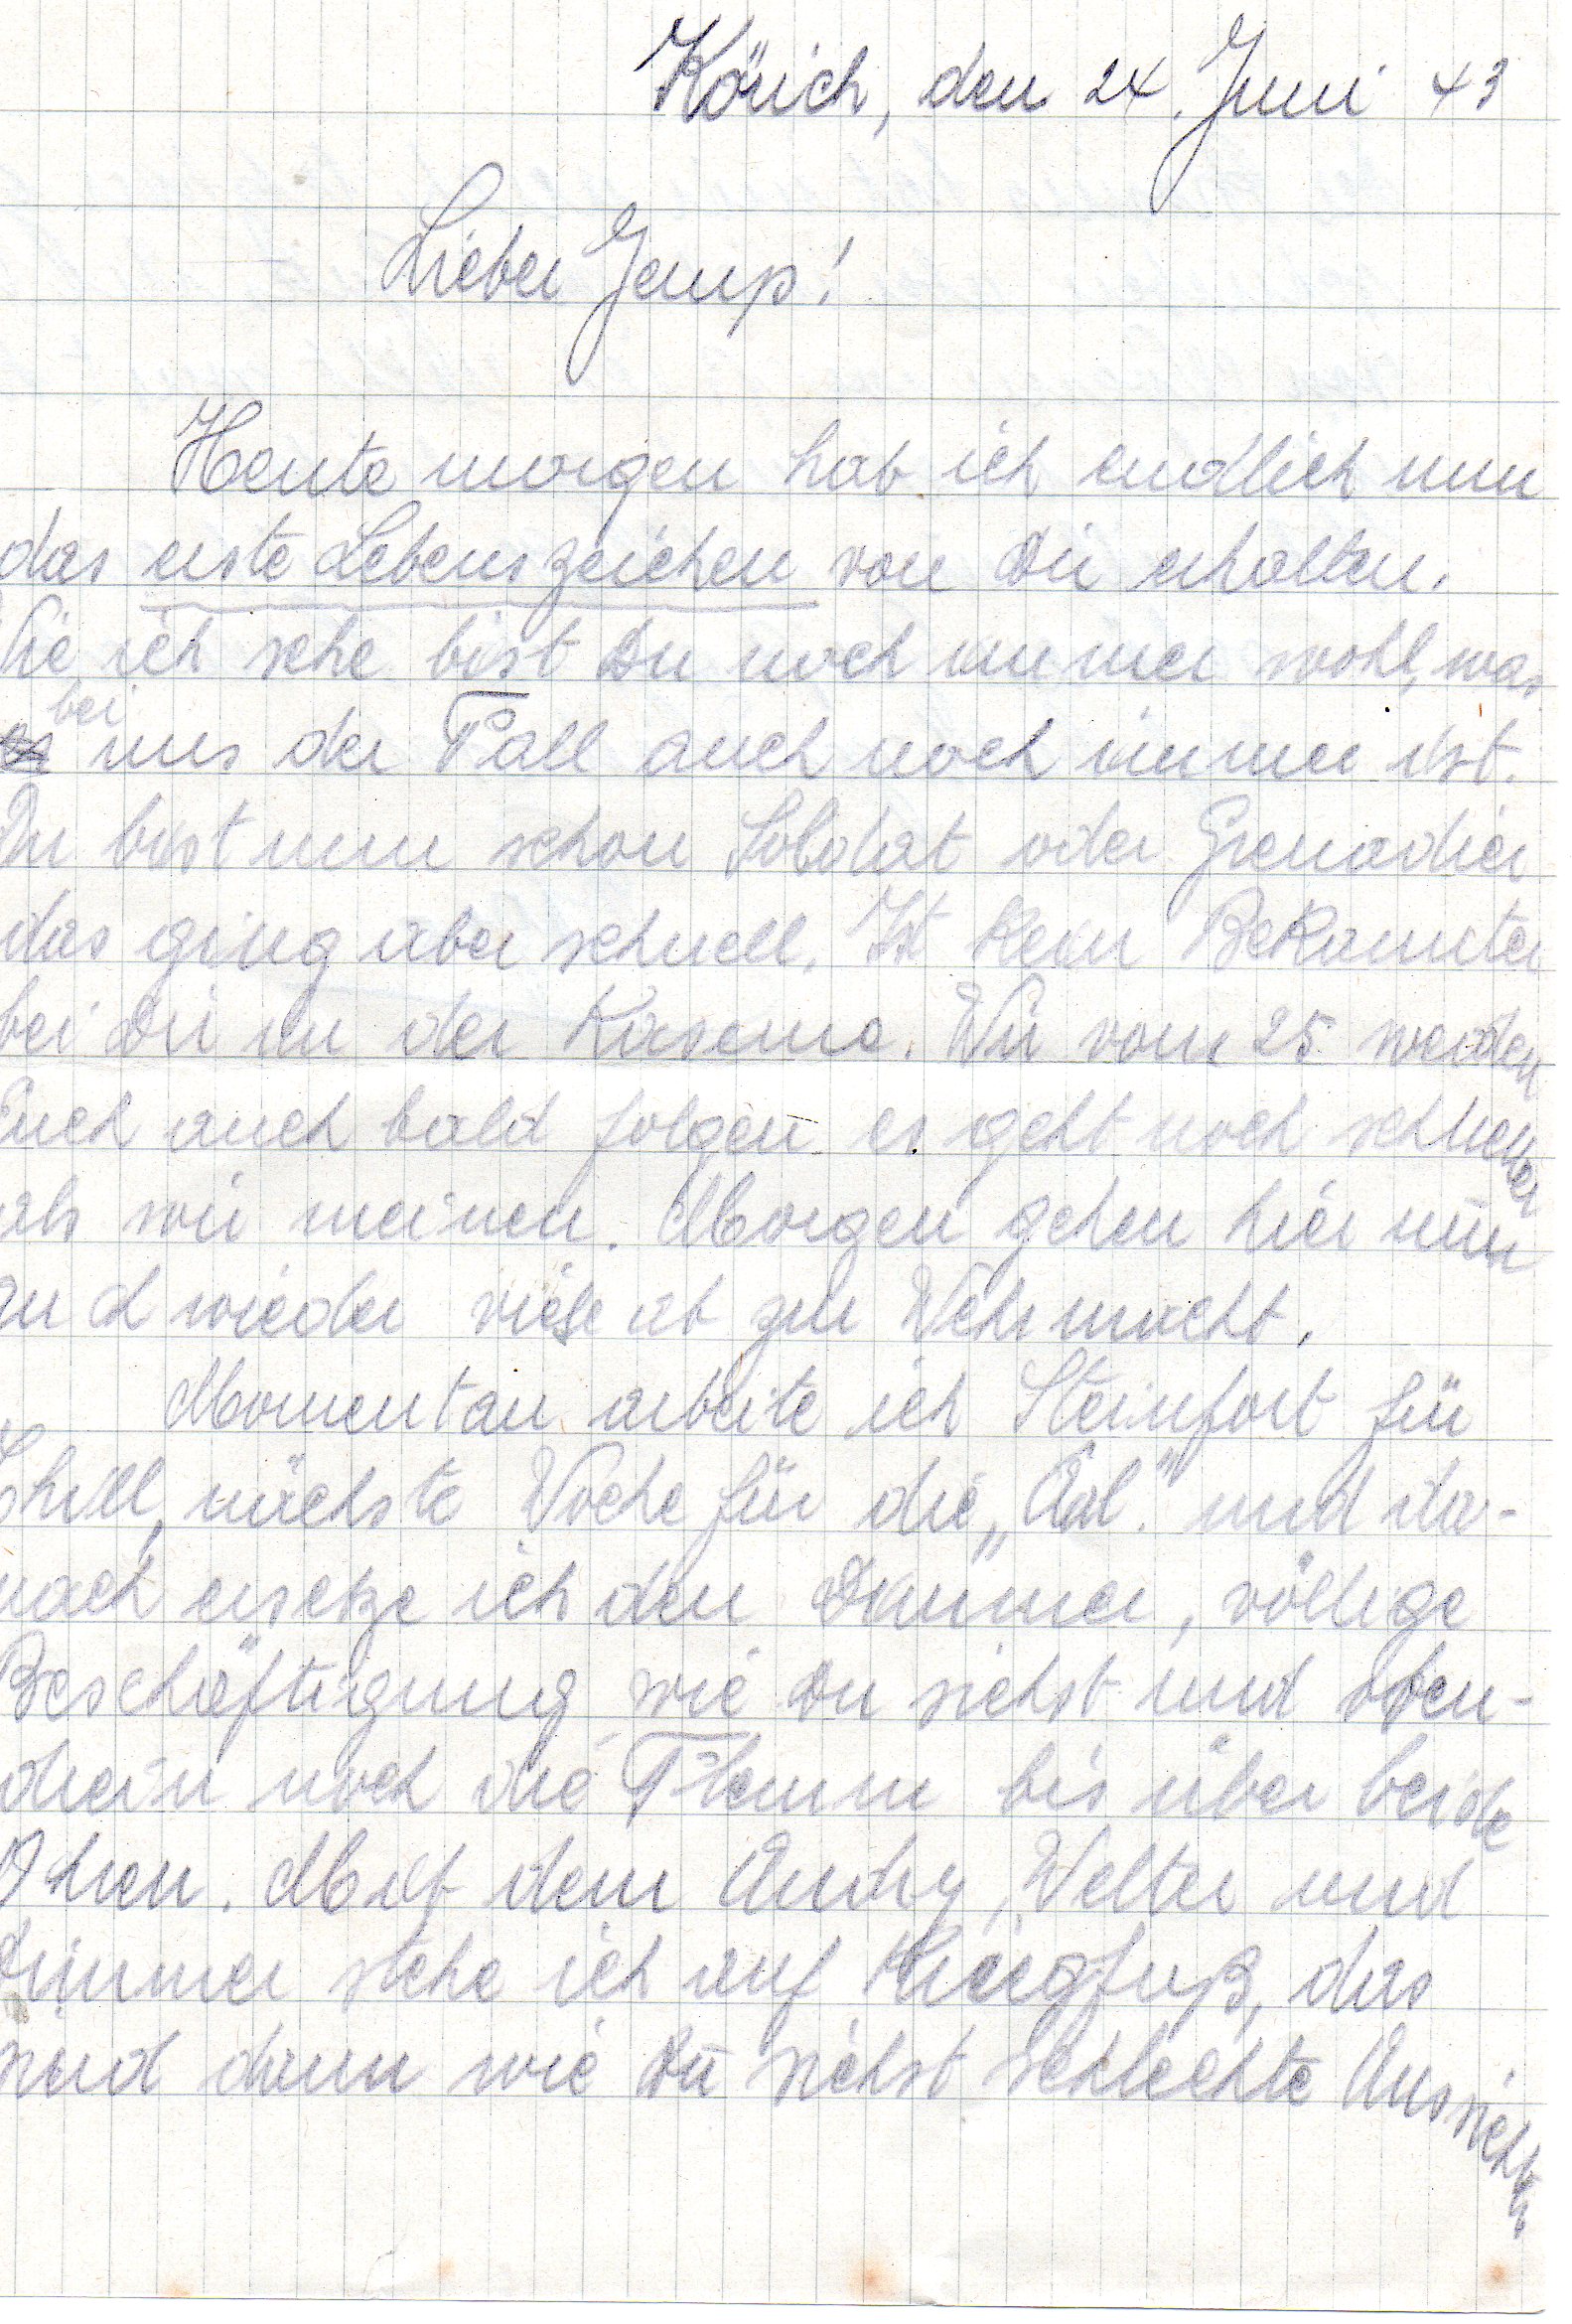 Körich, den 24. Juni 43
Lieber Jemp!
Heute morgen hab ich endlich nun
das erste Lebenszeichen von Dir erhalten.
Wie ich sehe bist Du noch immer wohl, was
bei uns der Fall auch noch immer ist.
Du bist nun schon Soldat oder Grenadier
das ging aber schnell. Ist kein Bekannter
bei Dir in der Kaserne. Wir vom 25 werden
Euch auch bald folgen es geht noch schneller
als wir meinen. Morgen gehen hier nun
auch wieder viele ab zur Wehrmacht.
Momentan arbeite ich Steinfort für
Schill, nächste Woche für die „Adl." und da-
nach ersetze ich den Dimmer, völlige
Beschäftigung wie Du siehst und oben-
drein noch die Flemm bis über beide
Ohren. Mit dem Andry, Welter und
Dimmer stehe ich auf Kriegfuß, das
sind dann wie Du siehst schlechte Aussichten.